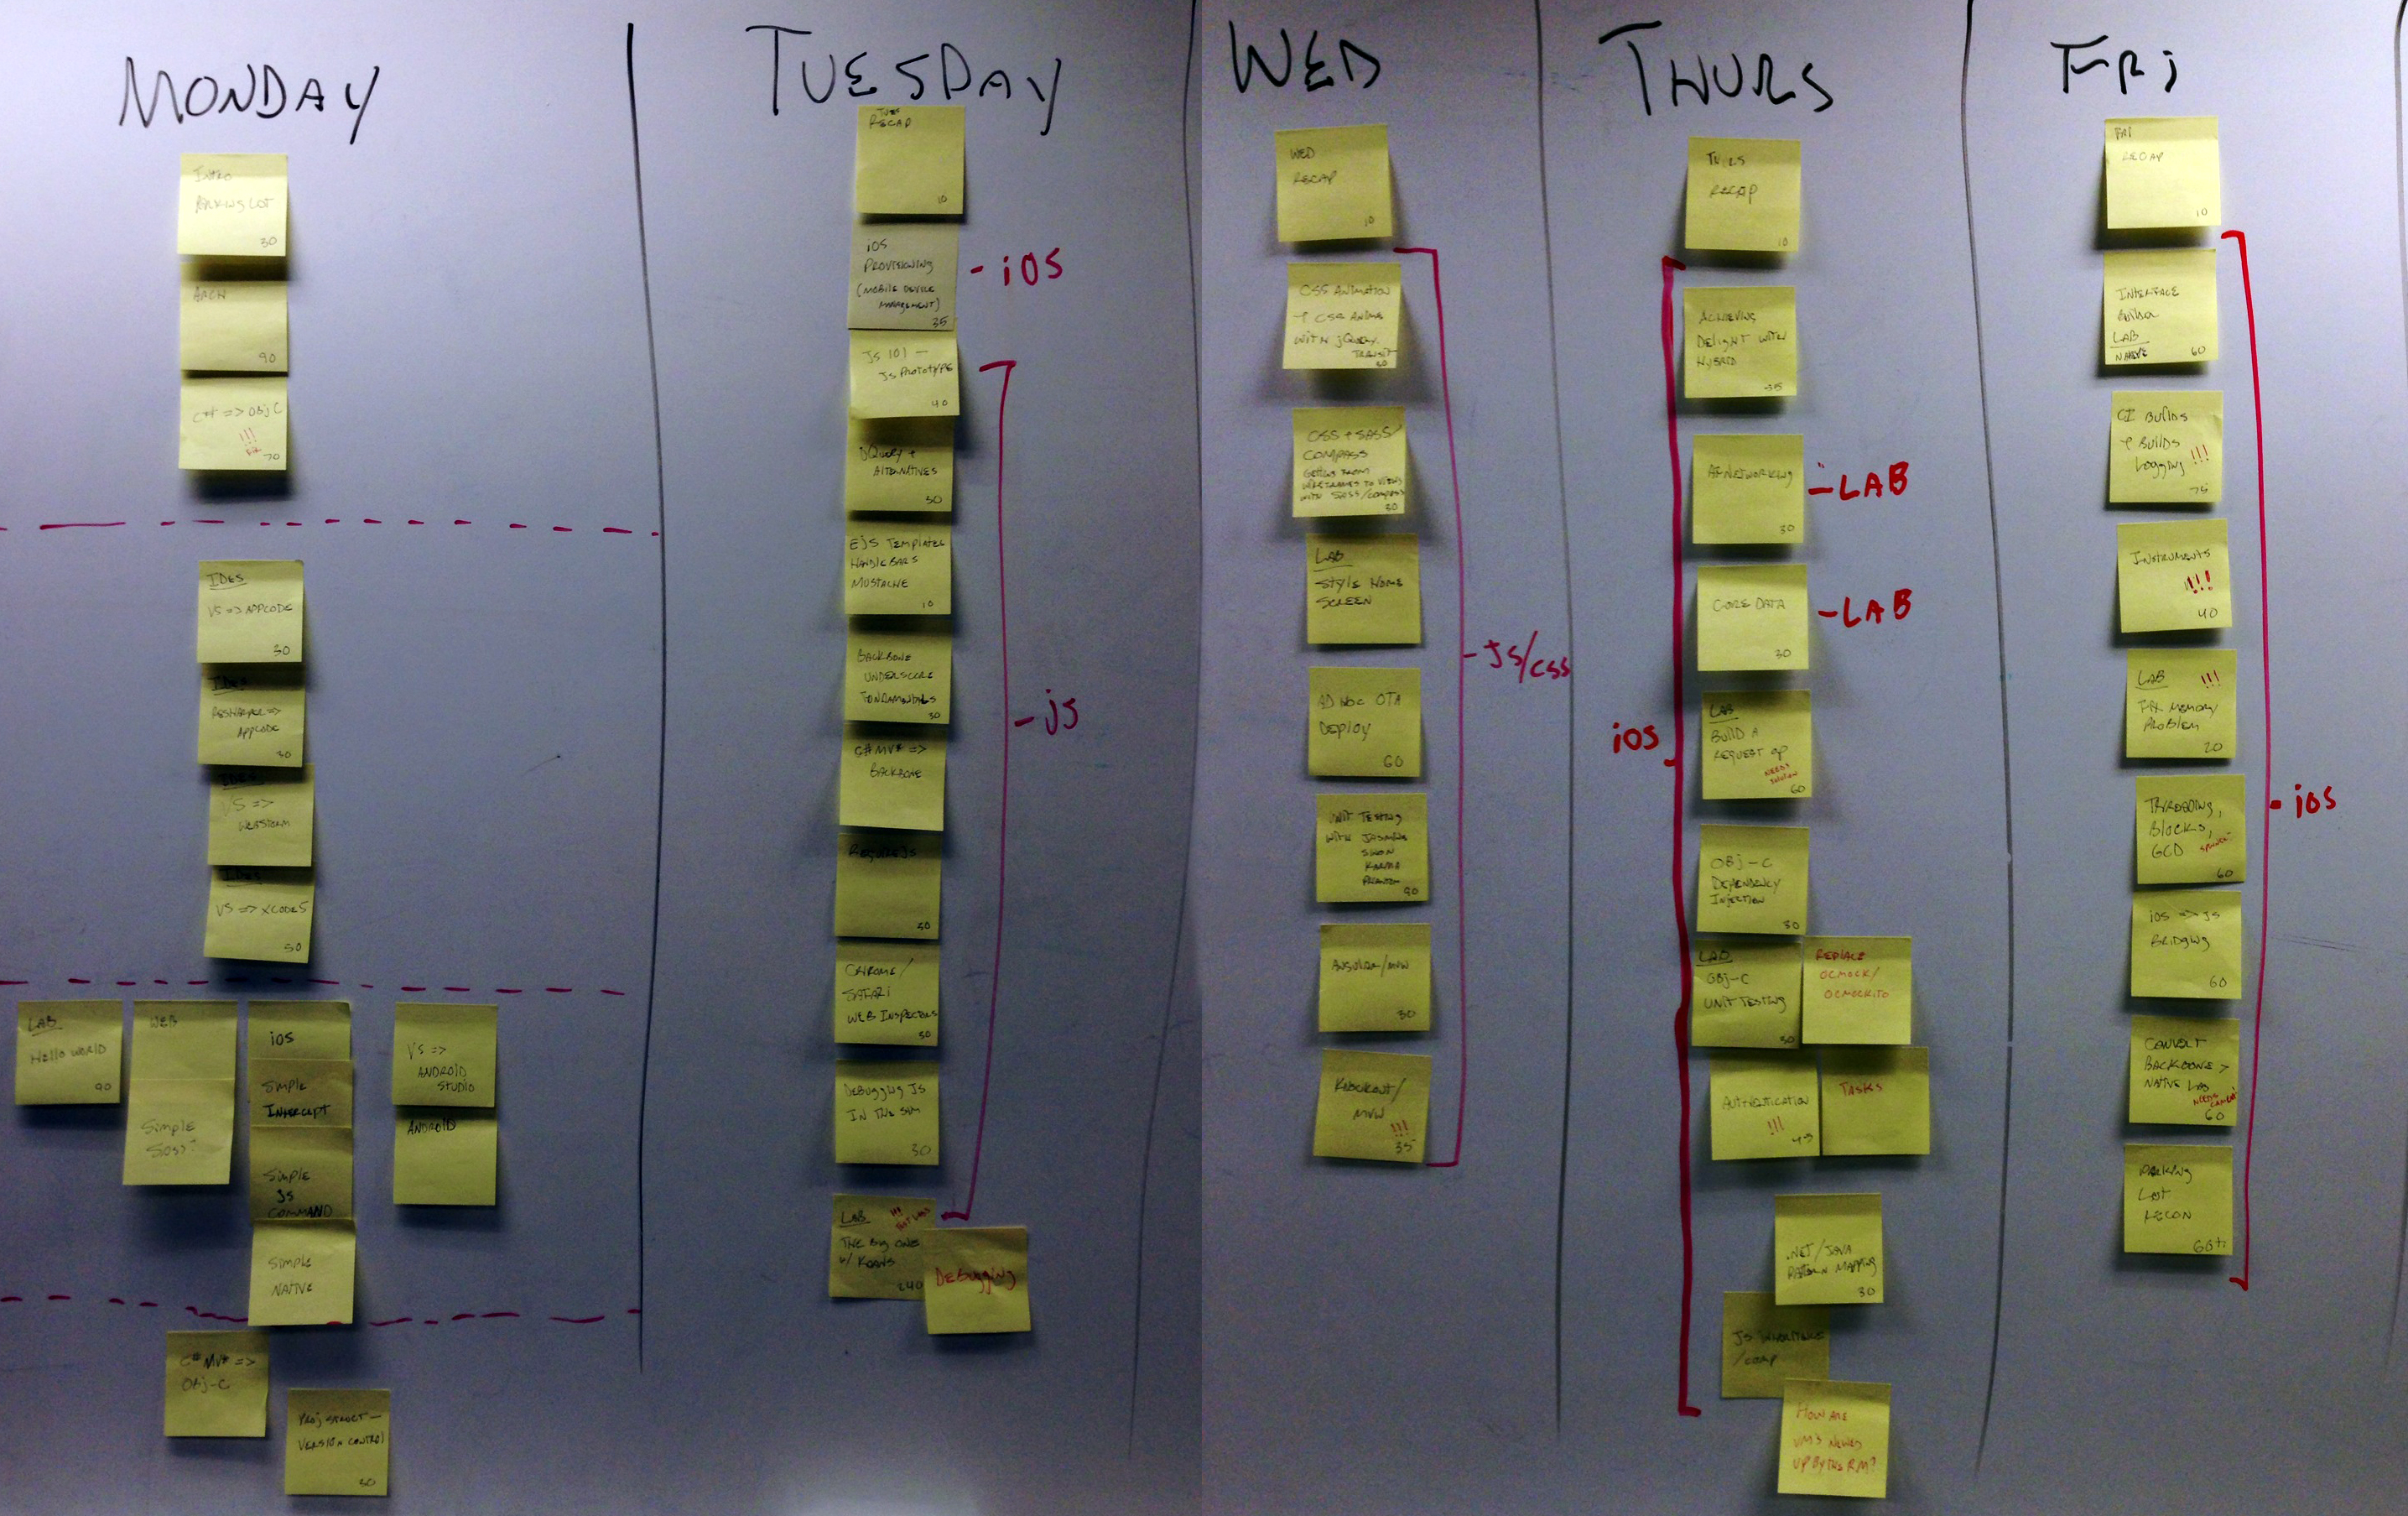 MONDAY
INTRO
PARKING LOT
30
ARCH
90
C# => OBJC
!!!
70
IDES
VS => APPCODE
30
IDES
RESHARPER =>
APPCODE
30
IDES
VS =>
WEBSTORM
IDES
VS => XCODE5
30
LAB
Hello WORLD
90
WEB
Simple
iOS
SIMPLE
INTERCEPT
SIMPLE
JS
COMMAND
SIMPLE
NATIVE
VS =>
ANDROID
STUDIO
ANDROID
C# MV* =>
OBJ-C
PROJ STRUCT -
VERSION CONTROL
30
TUESDAY
TUES
RECAP
10
iOS
PROVISIONING
(MOBILE DEVICE
MANAGEMENT)
35
- iOS
JS 101 -
JS PROTOTYPE
40
JQuery +
ALTERNATIVES
30
EJS TEMPLATES
HANDLEBARS
MUSTACHE
10
BACKBONE
UNDERSCORE
FUNDAMENTALS
30
C# MV* =>
BACKBONE
REQUIREJS
30
CHROME/
SAFARI
WEB INSPECTORS
30
DEBUGGING JS
IN THE SIM
30
- JS
LAB
!!!
THE BIG ONE
w/ KOANS
240
DEBUGGING
WED
WED
RECAP
10
CSS ANIMATION
+ CSS ANIMS
WITH JQUERY.
TRANSIT
30
CSS + SASS/
COMPASS
GETTING FROM
WIREFRAMES TO VIEWS
WITH SASS/COMPASS
30
LAB
STYLE HOME
SCREEN
AD HOC OTA
DEPLOY
60
UNIT TESTING
WITH JASMINE
SINON
KARMA
PHANTOM
90
ANGULAR/MVW
30
KNOCKOUT/
MVW
!!!
35
- JS/CSS
THURS
THURS
RECAP
10
ACHIEVING
DELIGHT WITH
HYBRID
35
AFNETWORKING
30
- LAB
CORE DATA
30
- LAB
LAB
BUILD A
REQUEST OP
NEEDS
60
iOS
OBJ-C
DEPENDENCY
INJECTION
30
LAB
OBJ-C
UNIT TESTING
30
REPLACE
OCMOCK/
OCMOCKITO
AUTHENTICATION
!!!
45
TASKS
.NET/JAVA
PATTERN MAPPING
30
JS INHERITANCE
/COMP
HOW ARE
VM'S NEWED
UP BY THIS RM?
FRI
FRI
RECAP
10
INTERFACE
Builder
LAB
NATIVE
60
CI BUILDS
+ BUILDS
Logging !!!
75
INSTRUMENTS
!!!
40
LAB !!!
FIX MEMORY
PROBLEM
20
THREADING,
BLOCKS,
GCD
60
iOS => JS
BRIDGING
60
CONVERT
BACKBONE >
NATIVE LAB
NEEDS
60
PARKING
LOT
RECON
60+
- iOS